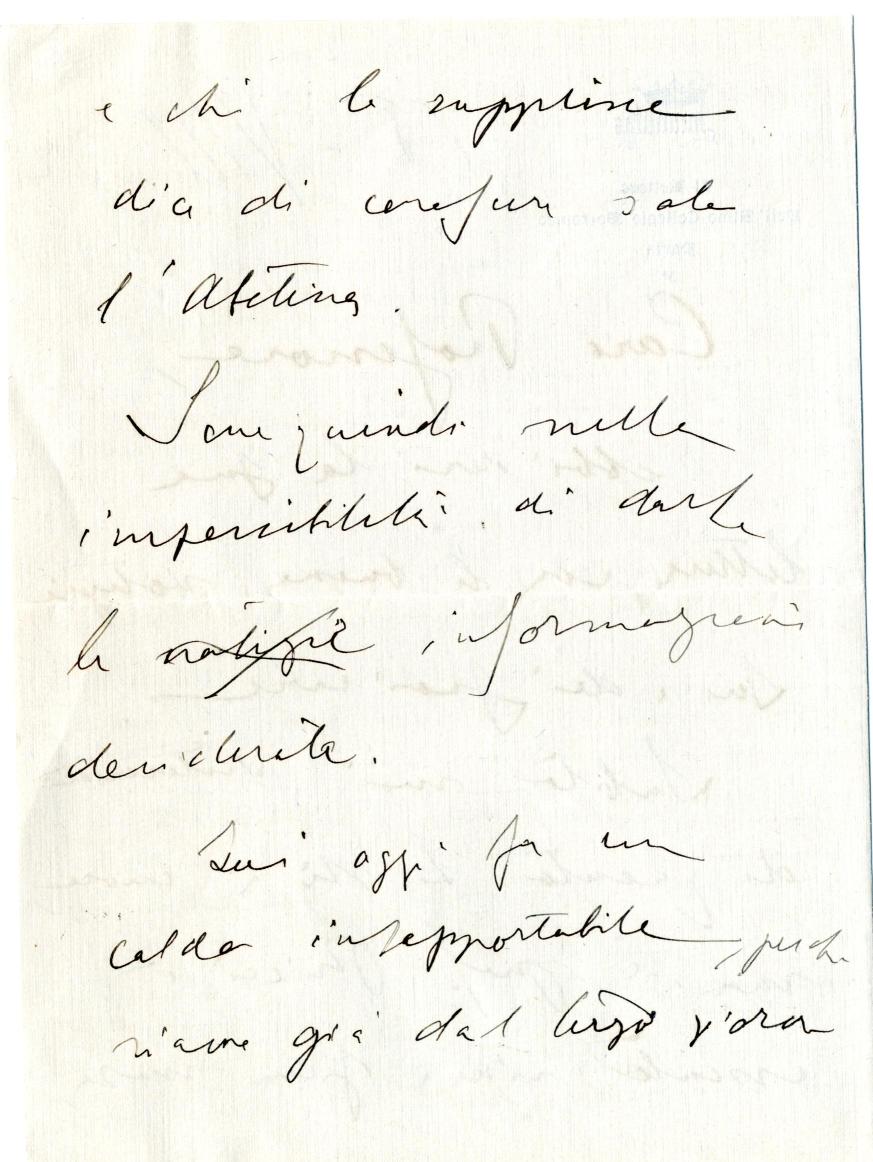 e chi lo supplisce
dice di conoscere solo
l'Abetina.
Sono quindi nella
impossibilità di darle
le notizie informazioni
desiderate.
Qui oggi fa un
caldo insopportabile, perchè
siamo già dal terzo giorno